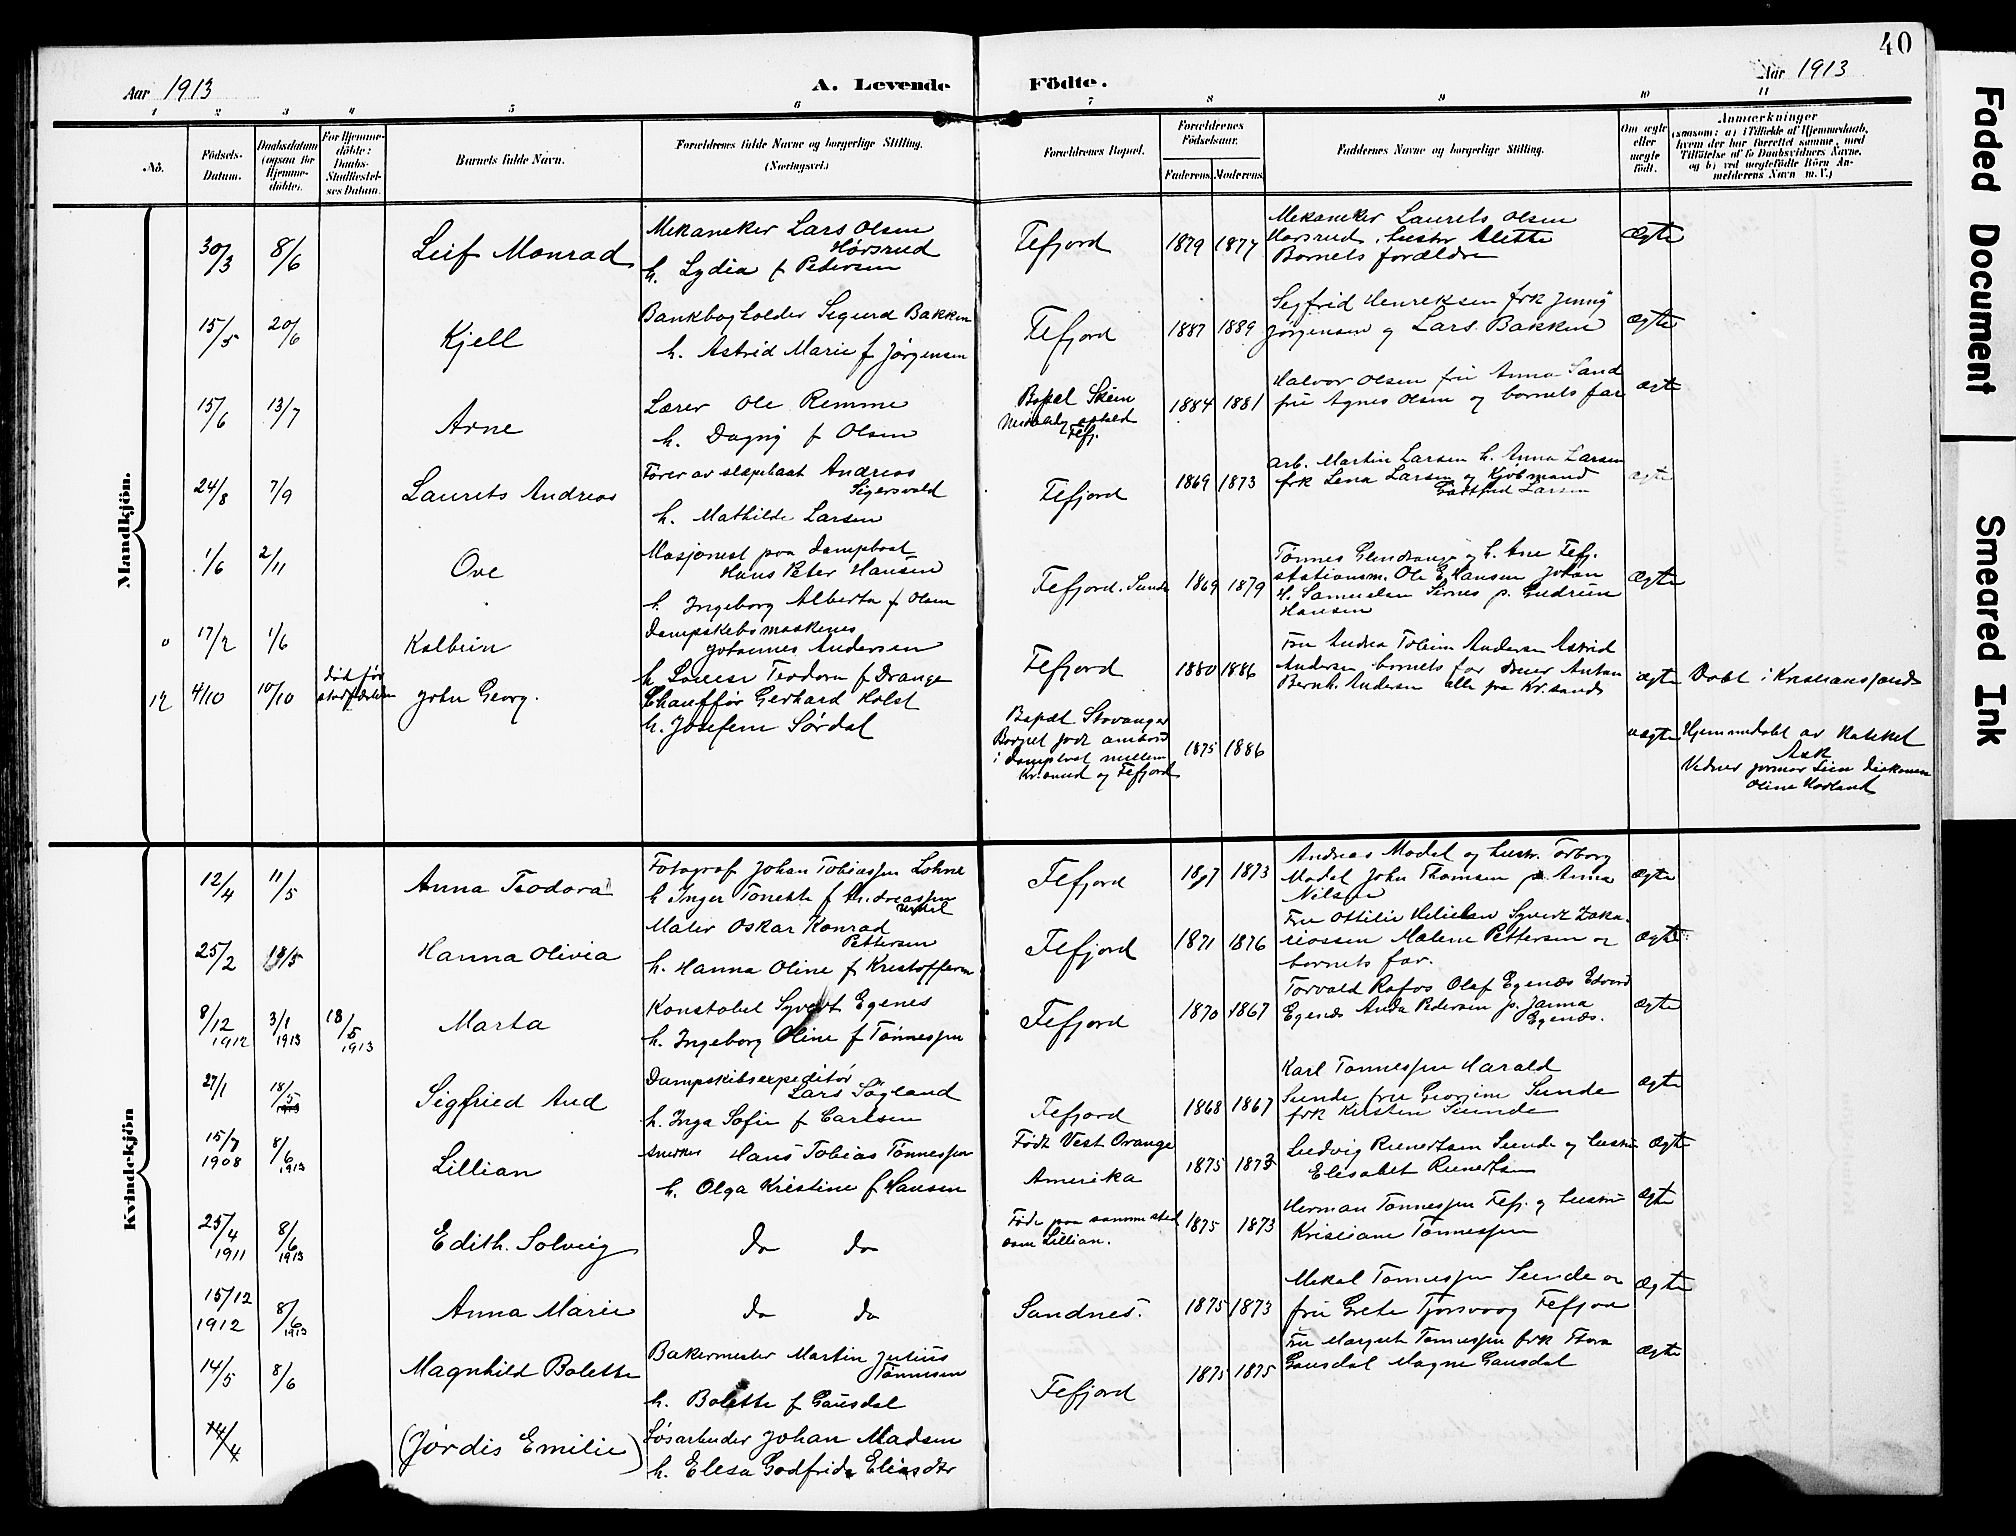 40
Aar 1913
A. Levende
Födte.
Aar 1913
1 2 3 4 5 6 7 8 9 10 11
No.
Födsels-Datum.
Daabsdatum (ogsaa for Hjemmedøbte).
For Hjemmedöbte: Daabs-Stadfæstelses Datum.
Barnets fulde Navn.
Forældrenes fulde Navne og borgerlige Stilling. (Næringsvei.)
Forældrenes Bopæl.
Forældrenes Födselsaar.
Faderens. Moderens.
Faddernes Navne og borgerlige Stilling.
Om ægte eller uægte födt.
Anmærkninger
(saasom: a) i Tilfælde af Hjemmedaab, hvem der har forrettet samme, med Tilföielse af to Daabsvidners Navne, og b) ved uegtefödte Börn Anmelderens Navn m. V.)
Mandkjön.
30/3 8/6 Leif Monrad
Mekaneker Lars Olsen
Hørsrud
h. Lydia f Pedersen
Fefjord 1879 1877
Mekaneker Laurets Olsen
Hørsrud, hustr Alette
Barnets forældre
Ægte
15/5 20/6 Kjell
Bankbogholder Sigurd Bakken
h. Astrid Marie f Jørgensen
Fefjord 1887 1889
Segfrid Henreksen frk Jenny
Jørgensen og Lars Bakken
Ægte
15/6 13/7 Arne
Lærer Ole Remme
h. Dagny f Olsen
Bopæl Skien
1884 1881
Halvor Olsen fru Anna Sand
fru Agnes Olsen og barnets far
ægte
24/8 7/9 Laurets Andreas
Fører av slæpebaat Andreas
Sigersvold
h. Mathilde Larsen
Fefjord 1869 1873
arb. Martin Larsen h. Anna Larsen
frk Lena Larsen og Kjøbmand
Gottfred Larsen
ægte
1/6 2/11 Ove
Masjonest paa dampbaat
Hans Peter Hansen
h. Ingeborg Alberta f Olsen
Fefjord. Sunde 1869 1879
Tønnes Glendrange og h. Ane Fefj.
stationsm. Ole E Hansen Johan
H. Samuelsen Sirnes p. Gudrun
Hansen
Ægte
17/2 1/6 Kolbein
Dampskebsmaskenes
Johannes Andersen
h Louise Teodora f Drange
Fefjord 1880 1886
Fru Andrea Andersen Astrid
Andersen, barnets far Anton
Bernh. Andersen alle fra Kr.sand
ægte Døbt i Kristianssand
12 4/10 10/10 død før
stadfæstelsen John Georg.
Chauffør Gerhard Holst
h. Josefine Sørdal
Bopæl Stavanger
Barnet født ombord
i dampbaat mellem
Kr.sand og Fefjord
1875 1886
uægte Hjemmedøbt av Kateket
Ask
Vidner diakonisse
Oline Hodland
Kvindekjön
12/4 11/5 Anna Teodora
Fotograf Johan Tobiassen Lohne
h Inger Tonette f Andreassen
Fefjord 1873
Andreas Modal og hustr. Torborg
Modal John Thomsen p. Anna
Nilsen
Ægte
25/2 18/5 Hanna Olivia
Maler Oskar Konrad
Pettersen
h. Hanna Oline f Kristoffersen
Fefjord 1871 1876
Fru Ottilie Syvert Zaka-
riassen Malene Pettersen og
barnets far.
Ægte
8/12 1912 3/1 1913 18/5 1913 Marta
Konstabel Syvert Egenes
h. Ingeborg Oline f Tønnessen
Fefjord 1870 1867
Torvald Rafos Olaf Egenæs Edvard
Egenæs Anda Pedersen p. Janna
Egenæs.
ægte
27/1 18/5 1913 Sigfried Aud
Dampskibsexpeditør
Lars Søyland
h. Inga Sofie f Carlsen
Fefjord 1868 1867
Karl Tønnessen Harald
Sunde fru Georgine Sunde
frk Kirsten Sunde
ægte
15/7 1908 8/6 1913 Lillian
snerker Hans Tobias Tønnessen
h. Olga Kristine f Hansen
Født Vest Orange
Amerika
1875 1873
Ludvig Reinertsen Sunde og hustru
Elisabet Reinertsen
Ægte
25/4 1911 8/6 1913 Edith. Solveig
do do
Føde paa samme sted
som Lillian.
1875 1873
Herman Tønnessen Fefj. og hustru
Kristiane Tønnessen
Ægte
15/12 1912 8/6 1913 Anna Marie
do do
Sandnes. 1875 1873
Mekal Tønnessen Sunde og
fru Grete Tjorsvaag Fefjord
Ægte
14/5 8/6 Magnhild Bolette
Bakermester Martin Julius
Tønnesen
h. Bolette f Gausdal
Fefjord 1875 1875
Fru Margret Tønnessen frk Thora
Gausdal Magne Gausdal
ægte
14/4 (Jørdis Emilie)
Løsarbeider Johan Madsen
h. Elesa Godfrida Eliasdtr
Faded Document
Smeared Ink